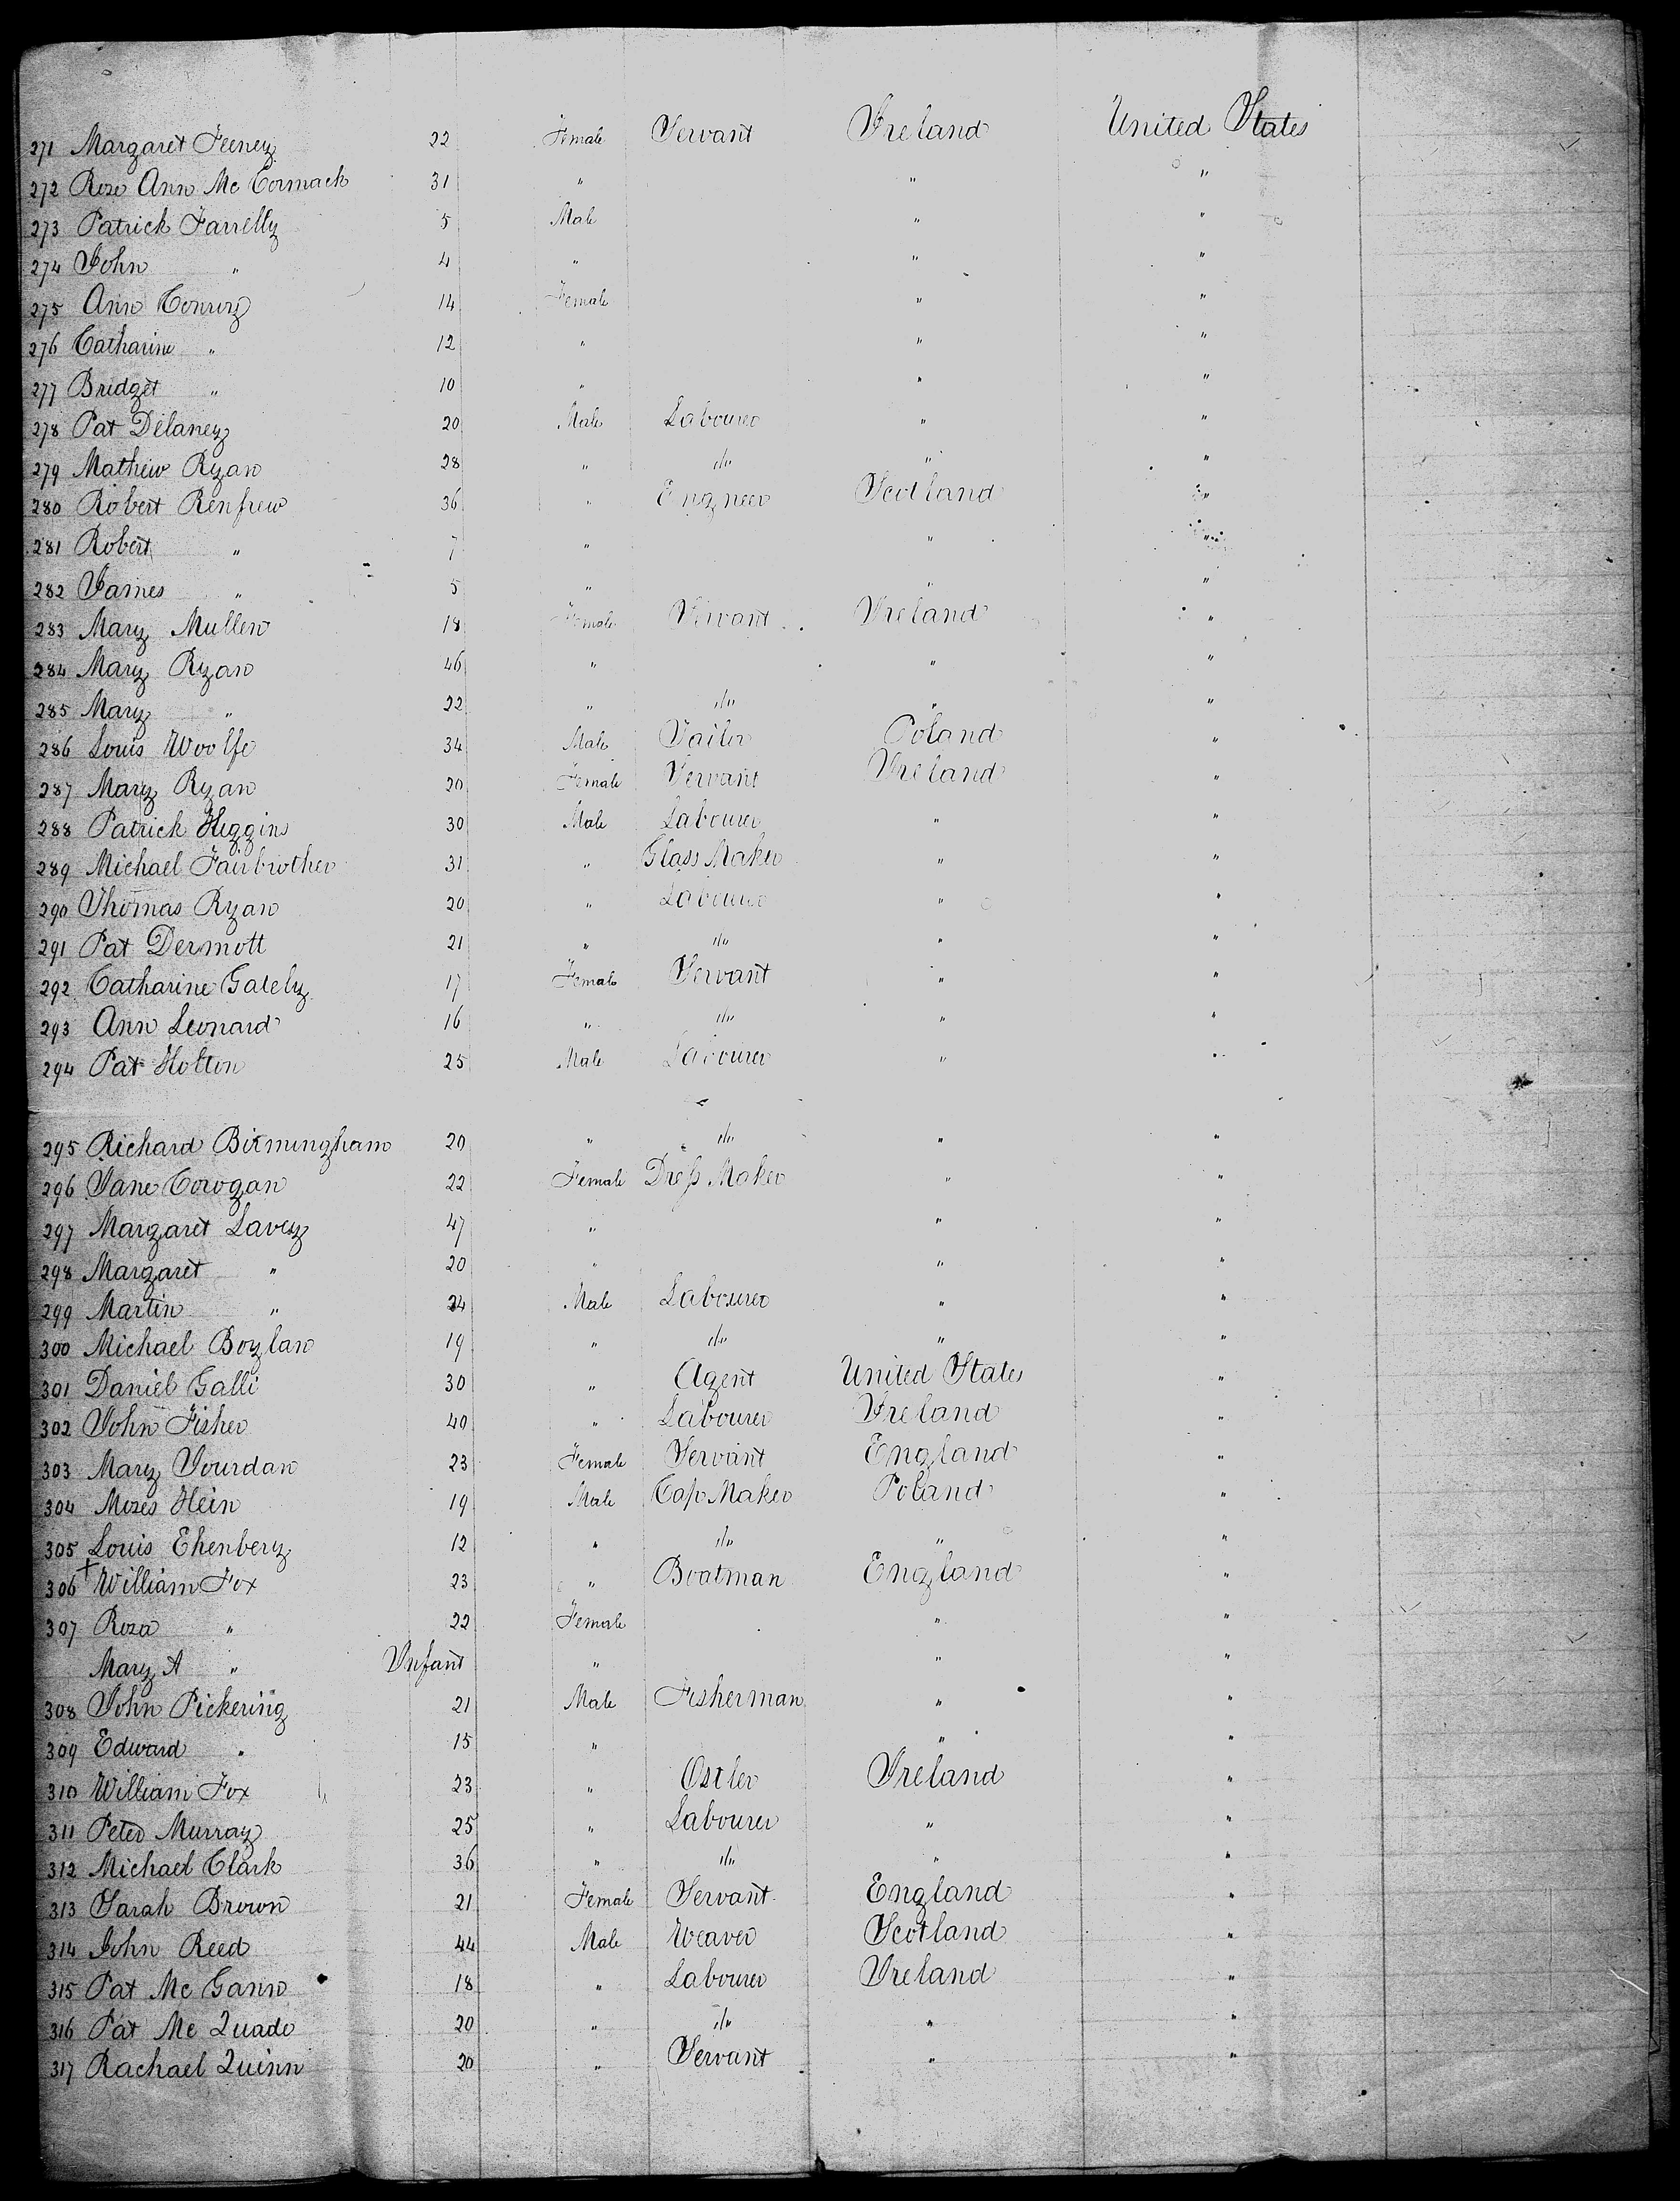 271 Margaret Feeney 22 Female Servant Ireland United States
272 Rose Ann Mc Cormack 31 " " "
273 Patrick Farrelly 5 Male " "
274 John " 4 " " "
275 Ann Conroy 14 Female " "
276 Catharine " 12 " " "
277 Bridget " 10 " " "
278 Pat Delaney 20 Male Labourer " "
279 Mathew Ryan 28 " do " "
280 Robert Renfrew 36 " Engineer Scotland "
281 Robert " 7 " " "
282 James " 5 " " "
283 Mary Mullen 18 Female Servant Ireland "
284 Mary Ryan 46 " " "
285 Mary " 22 " do " "
286 Louis Woolfe 34 Male Tailor Poland "
287 Mary Ryan 20 Female Servant Ireland "
288 Patrick Higgins 30 Male Labourer " "
289 Michael Fairbrother 31 " Glass Maker " "
290 Thomas Ryan 20 " Labourer " "
291 Pat Dermott 21 " do " "
292 Catharine Gately 17 Female Servant " "
293 Ann Leonard 16 " do " "
294 Pat Holton 25 Male Labourer " "
295 Richard Birmingham 20 " do " "
296 Jane Corogan 22 Female Dress Maker " "
297 Margaret Lavey 47 " " "
298 Margaret " 20 " " "
299 Martin " 24 Male Labourer " "
300 Michael Boylan 19 " do " "
301 Daniel Galli 30 " Agent United States "
302 John Fisher 40 " Labourer Ireland "
303 Mary Jourdan 23 Female Servant England "
304 Moses Hein 19 Male Cap Maker Poland "
305 Louis Ehenbery 12 " do " "
306 + William Fox 23 " Boatman England "
307 Roza " 22 Female " "
Mary A " Infant " " "
308 John Pickering 21 Male Fisherman " "
309 Edward " 15 " " "
310 William Fox 23 " Ostler Ireland "
311 Peter Murray 25 " Labourer " "
312 Michael Clark 36 " do " "
313 Sarah Brown 21 Female Servant England "
314 John Reed 44 Male Weaver Scotland "
315 Pat Mc Gann 18 " Labourer Ireland "
316 Pat Mc Quade 20 " do " "
317 Rachael Quinn 20 " Servant " "